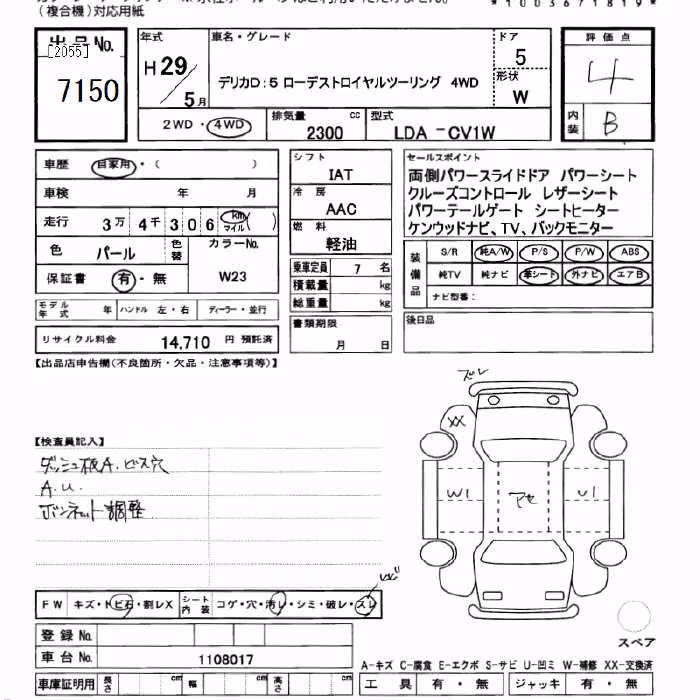 (複合機)対応用紙
*1003671819*
出品No.
[2055]
7150
年式
H29/5月
車名・グレード
デリカD:5 ローデストロイヤルツーリング 4WD
ドア
5
形状
W
評価点
4
内装
B
2WD・4WD
排気量 cc
2300
型式
LDA－CV1W
車歴 自家用・( )
車検 年 月
走行 3万4千306 km マイル ( )
色 パール
色替
カラーNo.
W23
保証書 有・無
モデル年式 年
ハンドル 左・右
ディーラー・並行
リサイクル料金 14,710 円 預託済
シフト
IAT
冷房
AAC
燃料
軽油
乗車定員 7 名
積載量 kg
総重量 kg
書類期限
月 日
セールスポイント
両側パワースライドドア パワーシート
クルーズコントロール レザーシート
パワーテールゲート シートヒーター
ケンウッドナビ、TV、バックモニター
装備品
S/R 純A/W P/S P/W ABS
純TV 純ナビ 革シート 外ナビ エアB
ナビ型番:
後日品
【出品店申告欄(不良箇所・欠品・注意事項等)】
【検査員記入】
ダッシュ板A.ビス穴
A.U.
ボンネット調整
ズレ
XX
W1
アセ
U1
FW キズ・トビ石・割レX
シート内装 コゲ・穴・汚レ・シミ・破レ・スレ
登録No.
車台No. 1108017
車庫証明用 長さ cm 幅 cm 高さ cm
スペア
A-キズ C-腐食 E-エクボ S-サビ U-凹ミ W-補修 XX-交換済
工具 有・無 ジャッキ 有・無